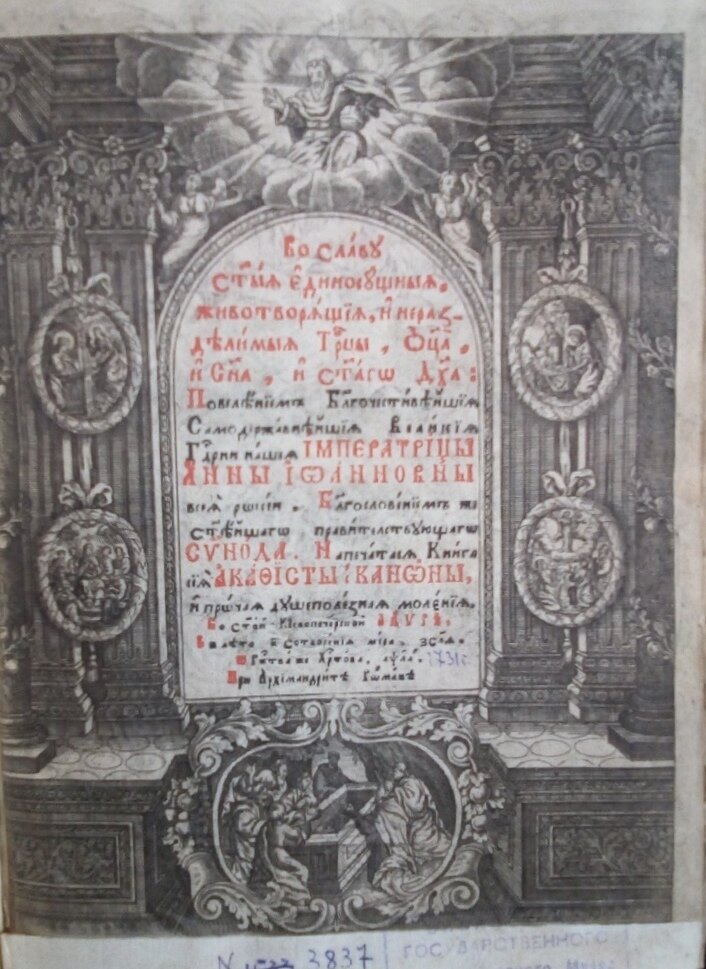 Во сла́ву
ст҃ы́ѧ є҆диносꙋ́щныѧ,
животворѧ́щїѧ, и҆ нераз-
дѣли́мыѧ Трⷪ҇цы, Ѻ҆ц҃а̀,
и҆ Сн҃а, и҆ ст҃а́гѡ Дх҃а:
Повелѣ́нїемъ Благочести́вѣйшїѧ
Самодержа́внѣйшїѧ Вели́кїѧ
Гдⷭ҇рни на́шеѧ ІМПЕРАТРІЦЫ
АННЫ ІѠАННОВНЫ
всеѧ̀ рѡссі́и. Благослове́нїемъ же
ст҃ѣ́йшагѡ прави́телствꙋющагѡ
СѴНОДА. Напеча́тасѧ Кни́га
сїѧ̀ АКАѲІСТЫ і КАНѠНЫ,
и҆ прѡ́чаѧ дꙋшеполе́знаѧ моле́нїѧ,
Во ст҃о́й Кїевопече́рской ЛАѴРѢ,
В лѣ́то ѿ сотворе́нїѧ мі́ра, ҂зсл҃ѳ.
Ѿ Рⷤ҇тва́ же Хрⷭ҇то́ва, ҂аѱл҃а. 1731г.
При Архїмандрі́тѣ Рѡма́нѣ
N 1522 3837
ГОСУДАРСТВЕННОГО